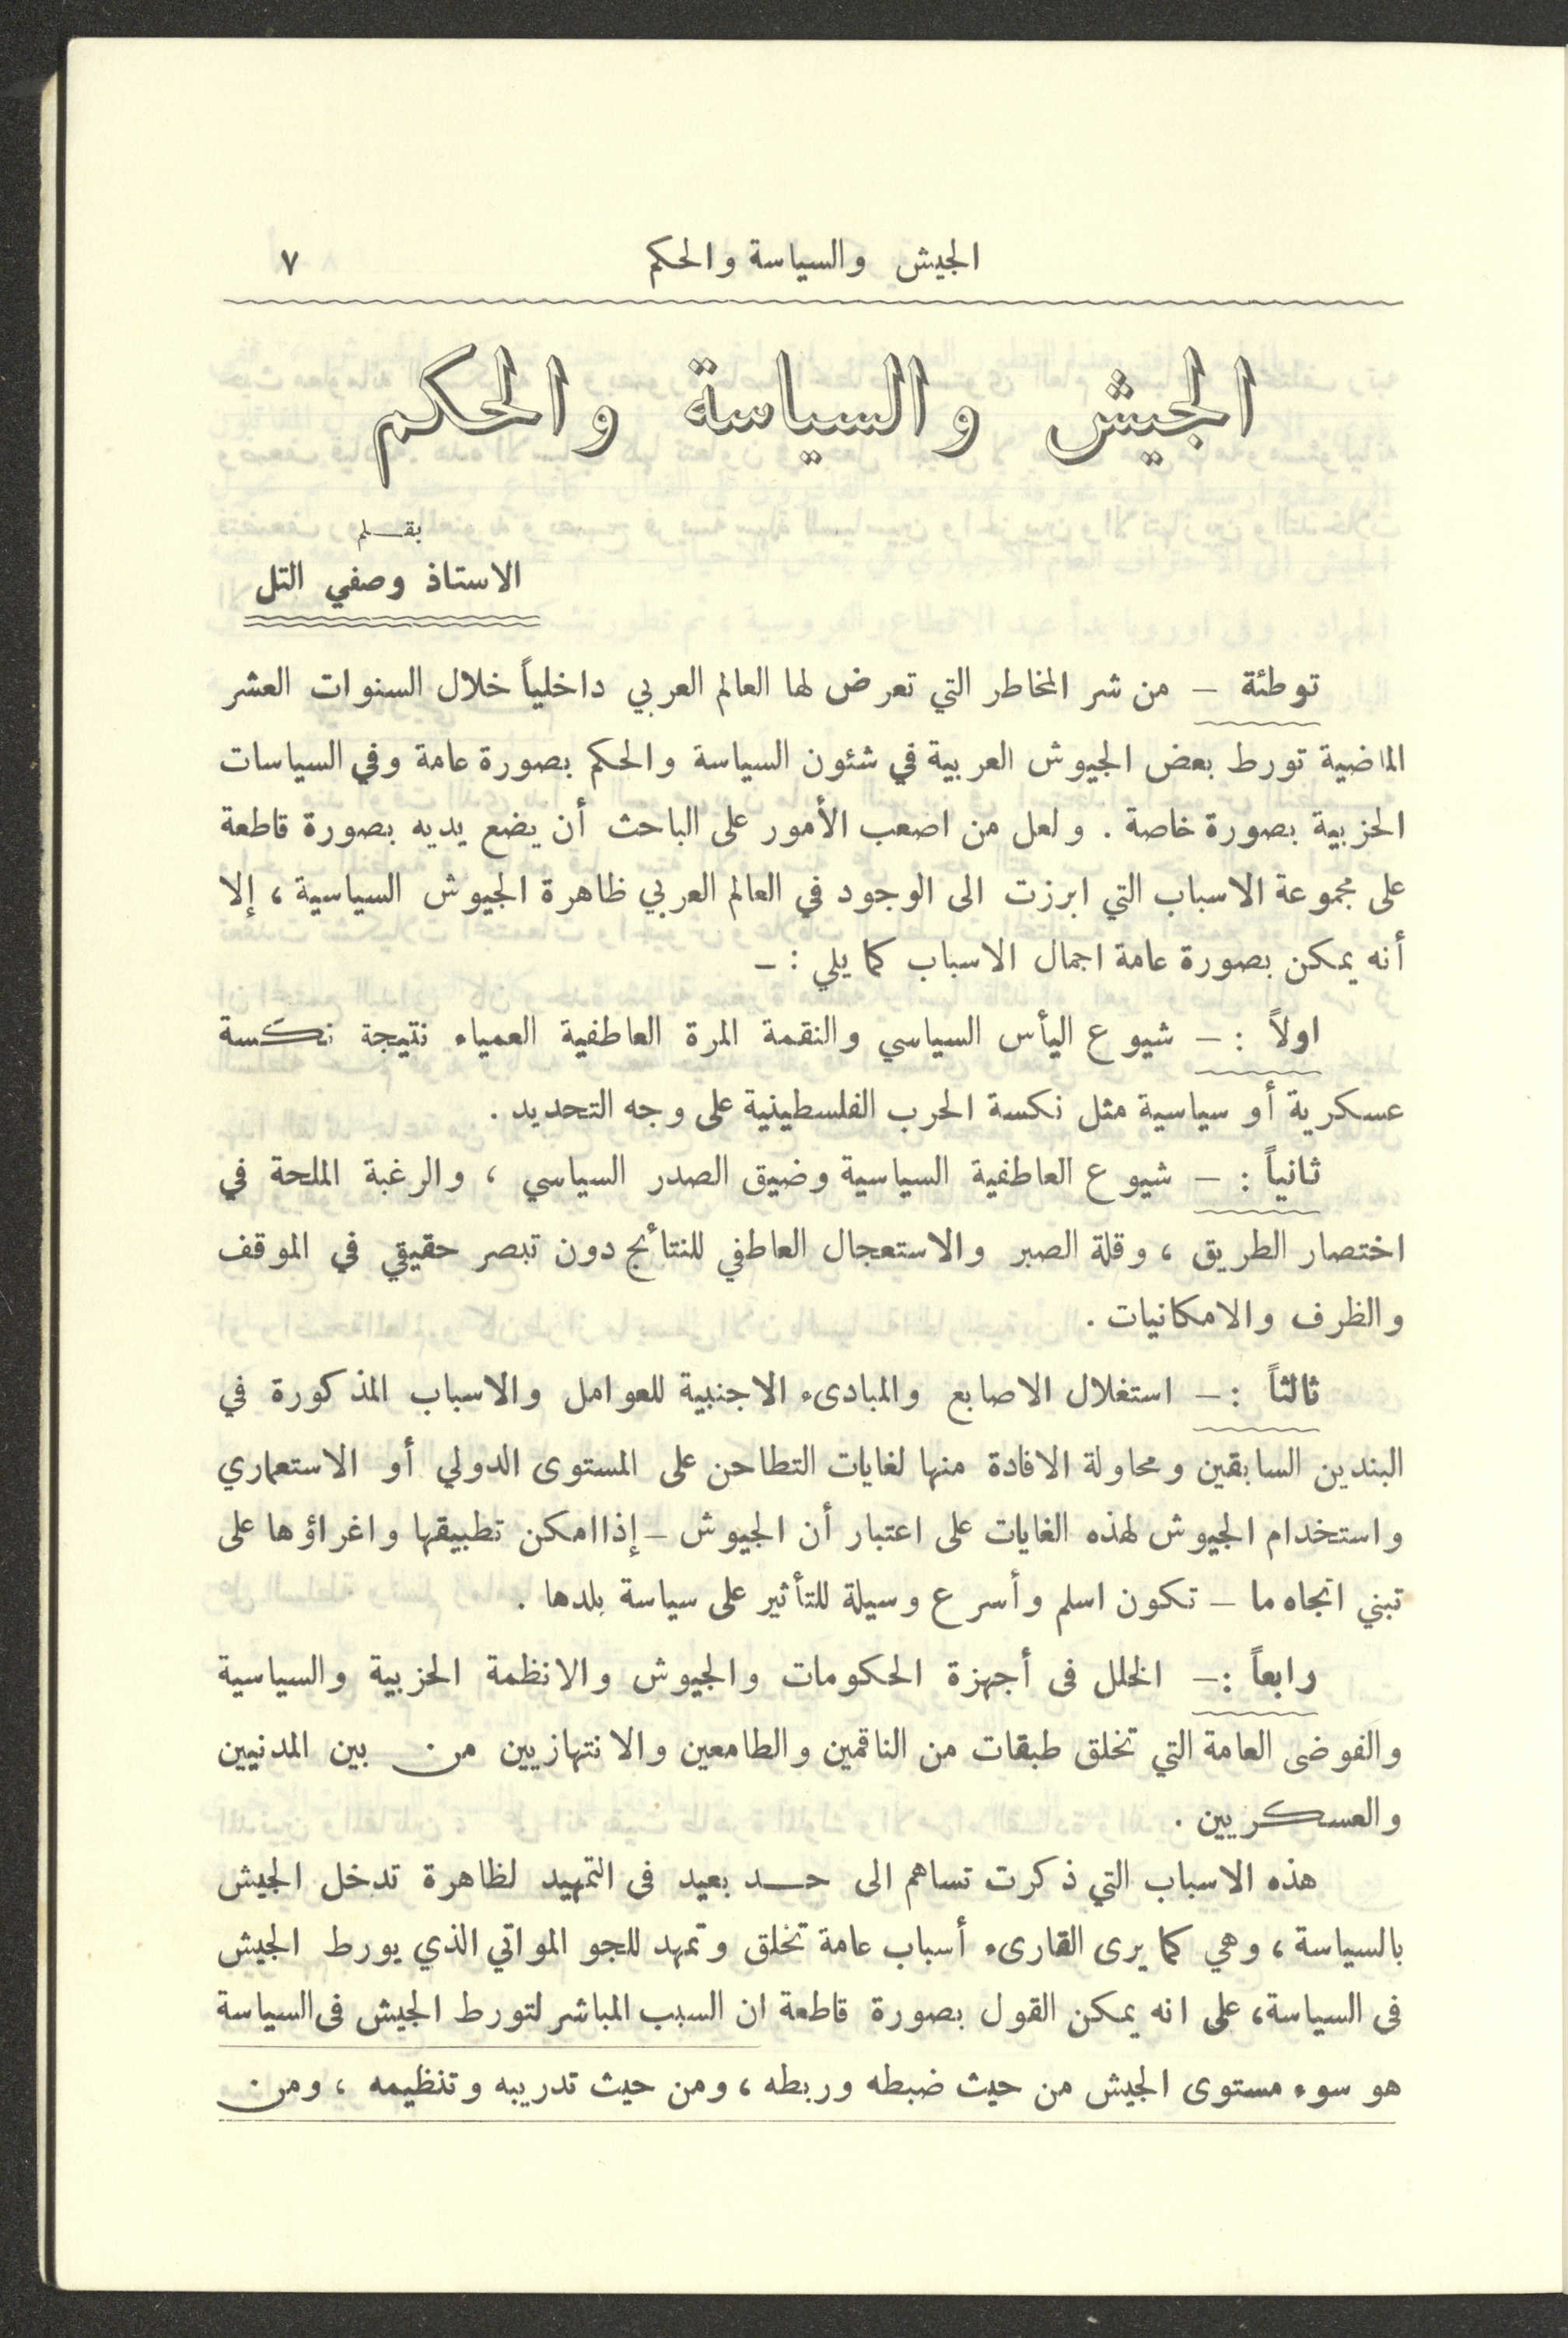 الجيش والسياسة والحكم ٧
الجيش والسياسة والحكم
بقـــلم
الاستاذ وصفي التل
توطئة – من شر المخاطر التي تعرض لها العالم العربي داخلياً خلال السنوات العشر
الماضية تورط بعض الجيوش العربية في شئون السياسة والحكم بصورة عامة وفي السياسات
الحزبية بصورة خاصة . ولعل من اصعب الأمور على الباحث أن يضع يديه بصورة قاطعة
على مجموعة الاسباب التي ابرزت الى الوجود في العالم العربي ظاهرة الجيوش السياسية ، إلا
أنه يمكن بصورة عامة اجمال الاسباب كما يلي : –
اولاً : – شيوع اليأس السياسي والنقمة المرة العاطفية العمياء نتيجة نكسة
عسكرية أو سياسية مثل نكسة الحرب الفلسطينية على وجه التحديد .
ثانياً : – شيوع العاطفية السياسية وضيق الصدر السياسي ، والرغبة الملحة في
اختصار الطريق ، وقلة الصبر والاستعجال العاطفي للنتائج دون تبصر حقيقي في الموقف
والظرف والامكانيات .
ثالثاً : – استغلال الاصابع والمبادىء الاجنبية للعوامل والاسباب المذكورة في
البندين السابقين ومحاولة الافادة منها لغايات التطاحن على المستوى الدولي أو الاستعماري
واستخدام الجيوش لهذه الغايات على اعتبار أن الجيوش – إذا امكن تطبيقها واغراؤها على
تبني اتجاه ما – تكون اسلم وأسرع وسيلة للتأثير على سياسة بلدها .
رابعاً : – الخلل فى أجهزة الحكومات والجيوش والانظمة الحزبية والسياسية
والفوضى العامة التي تخلق طبقات من الناقمين والطامعين والانتهازيين من بين المدنيين
والعسكريين .
هذه الاسباب التي ذكرت تساهم الى حـــد بعيد فى التمهيد لظاهرة تدخل الجيش
بالسياسة ، وهي كما يرى القارىء أسباب عامة تخلق وتمهد للجو المواتي الذي يورط الجيش
فى السياسة ، على انه يمكن القول بصورة قاطعة ان السبب المباشر لتورط الجيش فى السياسة
هو سوء مستوى الجيش من حيث ضبطه وربطه ، ومن حيث تدريبه وتنظيمه ، ومن